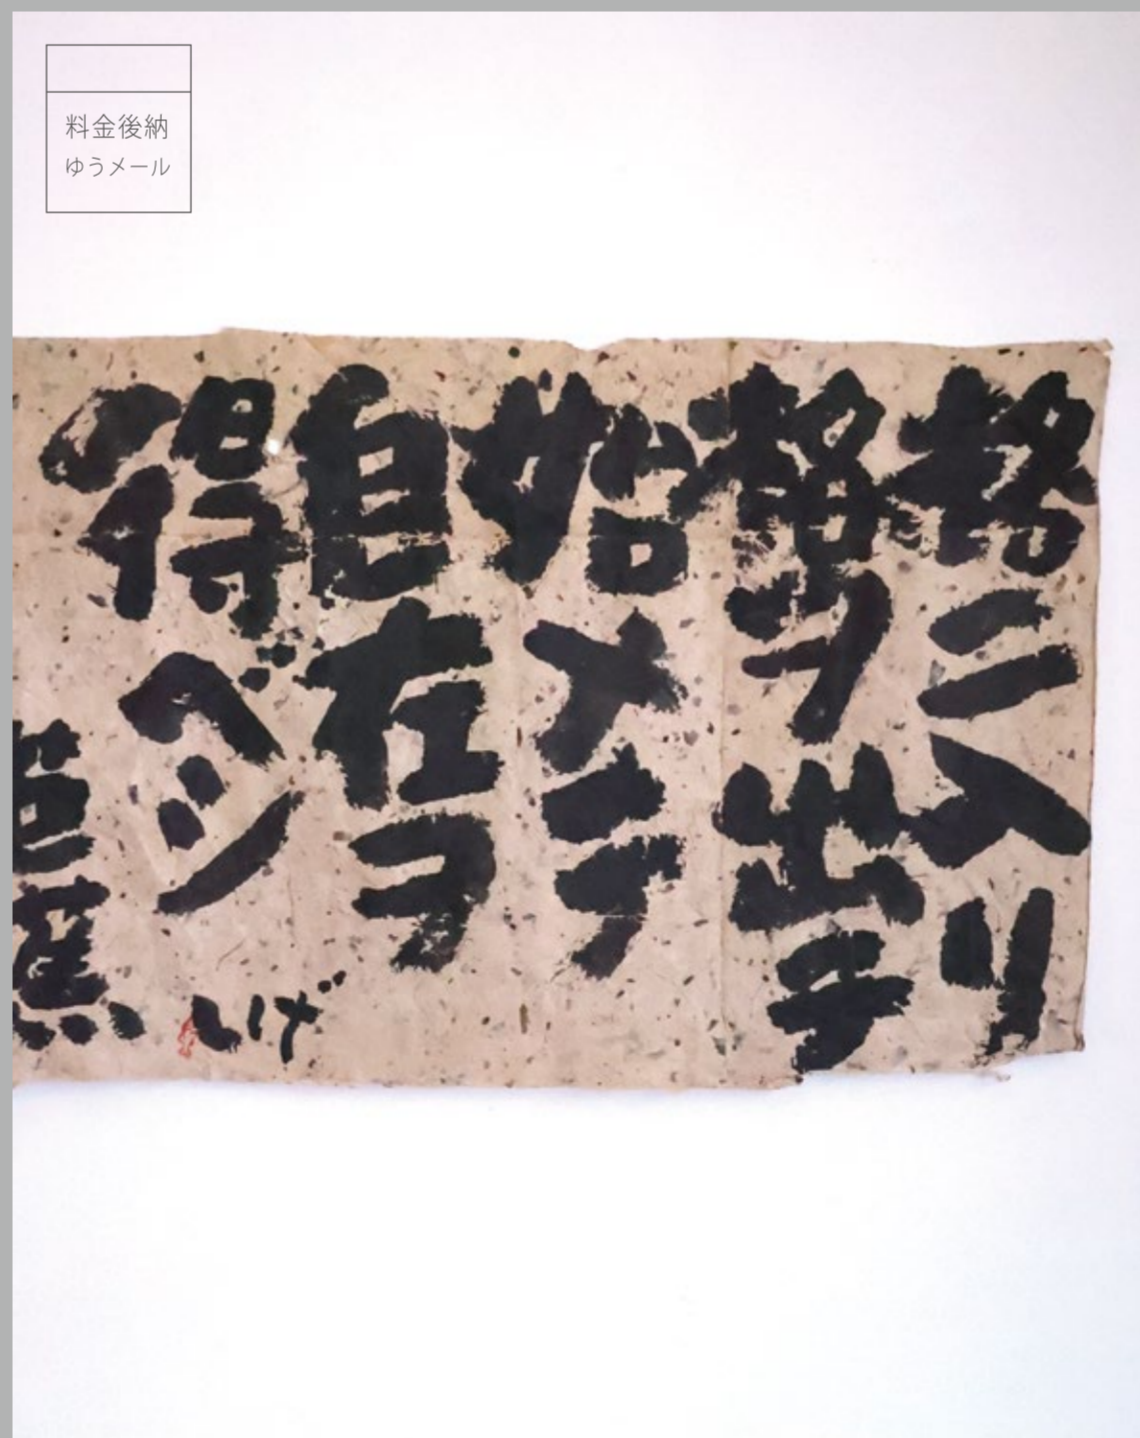 料金後納
ゆうメール
格ニ入リ
格ヲ出テ
始メテ
自在ヲ
得ベシ
芭蕉
しげ